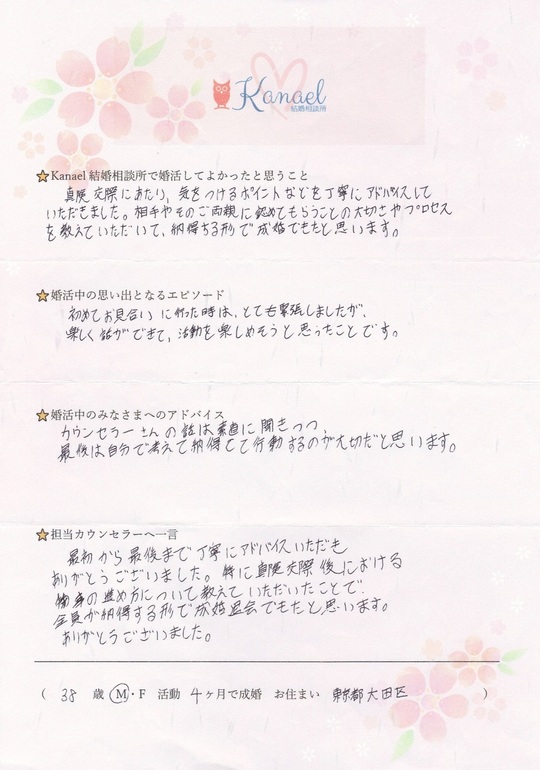 Kanael
結婚相談所
Kanael 結婚相談所で婚活してよかったと思うこと
真剣交際にあたり、気をつけるポイントなどを丁寧にアドバイスして
いただきました。相手やそのご両親に認めてもらうことの大切さやプロセス
を教えていただいて、納得する形で成婚できたと思います。
婚活中の思い出となるエピソード
初めてお見合いに行った時は、とても緊張しましたが、
楽しく話ができて、活動を楽しめそうと思ったことです。
婚活中のみなさまへのアドバイス
カウンセラーさんの話は素直に聞きつつ、
最後は自分で考えて納得して行動するのが大切だと思います。
担当カウンセラーへ一言
最初から最後まで丁寧にアドバイスいただき
ありがとうございました。特に真剣交際後における
の進め方について教えていただいたことで、
全員が納得する形で成婚退会できたと思います。
ありがとうございました。
( 38 歳 M・F 活動 4ヶ月で成婚 お住まい 東京都大田区 )